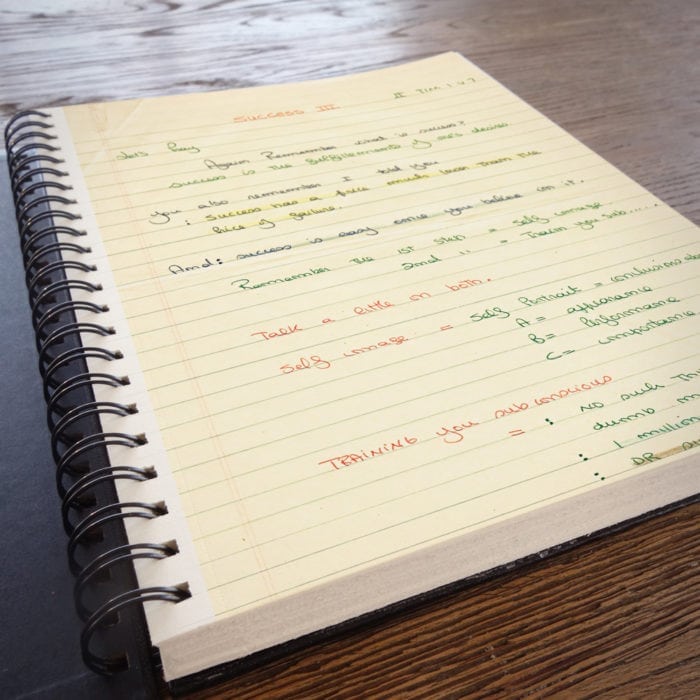 II Tim 1 v 7
Success III
Let's Pray
Again Remember what is success?
success is the fulfillement of one's desires
you also remember I told you
: Success has a price much less than the
price of failure.
And: success is easy once you believe in it.
Remember the 1st step = Self image
2nd " = Train you sub.....
Talk a little on both.
Self image = Self Portrait = conclusions
A = appearance
B = Performance
C = importance
TRAINING you subconscious
= : NO such
dumb
: 1 million
: DR